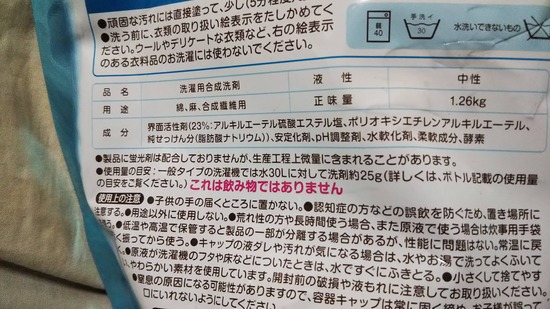 ●頑固な汚れには直接塗って、少し(5分程度)
●洗う前に、衣類の取り扱い絵表示をたしかめてく
ださい。ウールやデリケートな衣類など、右の絵表示
のある衣料品のお洗濯には使わないでください。
40
手洗イ
30
水洗いできないもの
品名 洗濯用合成洗剤 液性 中性
用途 綿、麻、合成繊維用 正味量 1.26kg
成分 界面活性剤(23%:アルキルエーテル硫酸エステル塩、ポリオキシエチレンアルキルエーテル、
純せっけん分(脂肪酸ナトリウム))、安定化剤、pH調整剤、水軟化剤、柔軟成分、酵素
●製品に蛍光剤は配合しておりませんが、生産工程上微量に含まれることがあります。
●使用量の目安:一般タイプの洗濯機では水30Lに対して洗剤約25g(詳しくは、ボトル記載の使用量
の目安をご覧ください。) これは飲み物ではありません
使用上の注意 ●子供の手の届くところに置かない。●認知症の方などの誤飲を防ぐため、置き場所に
注意する。●用途以外に使用しない。●荒れ性の方や長時間使う場合、また原液で使う場合は炊事用手袋
を使う。●低温や高温で保管すると製品の一部が分離する場合があるが、性能に問題はない。常温に戻
し、振ってから使う。●キャップの液ダレや汚れが気になる場合は、水やお湯で洗ってよくふいて
●原液が洗濯機のフタや床などについたときは、水ですぐにふきとる。●小さくして捨てやす
、やわらかい素材を使用しています。開封前の破損や液もれに注意してお取り扱いください。
●窒息の原因になる可能性がありますので、容器キャップは常に固く締め、お子様が誤って
口にいれないようにしてください。